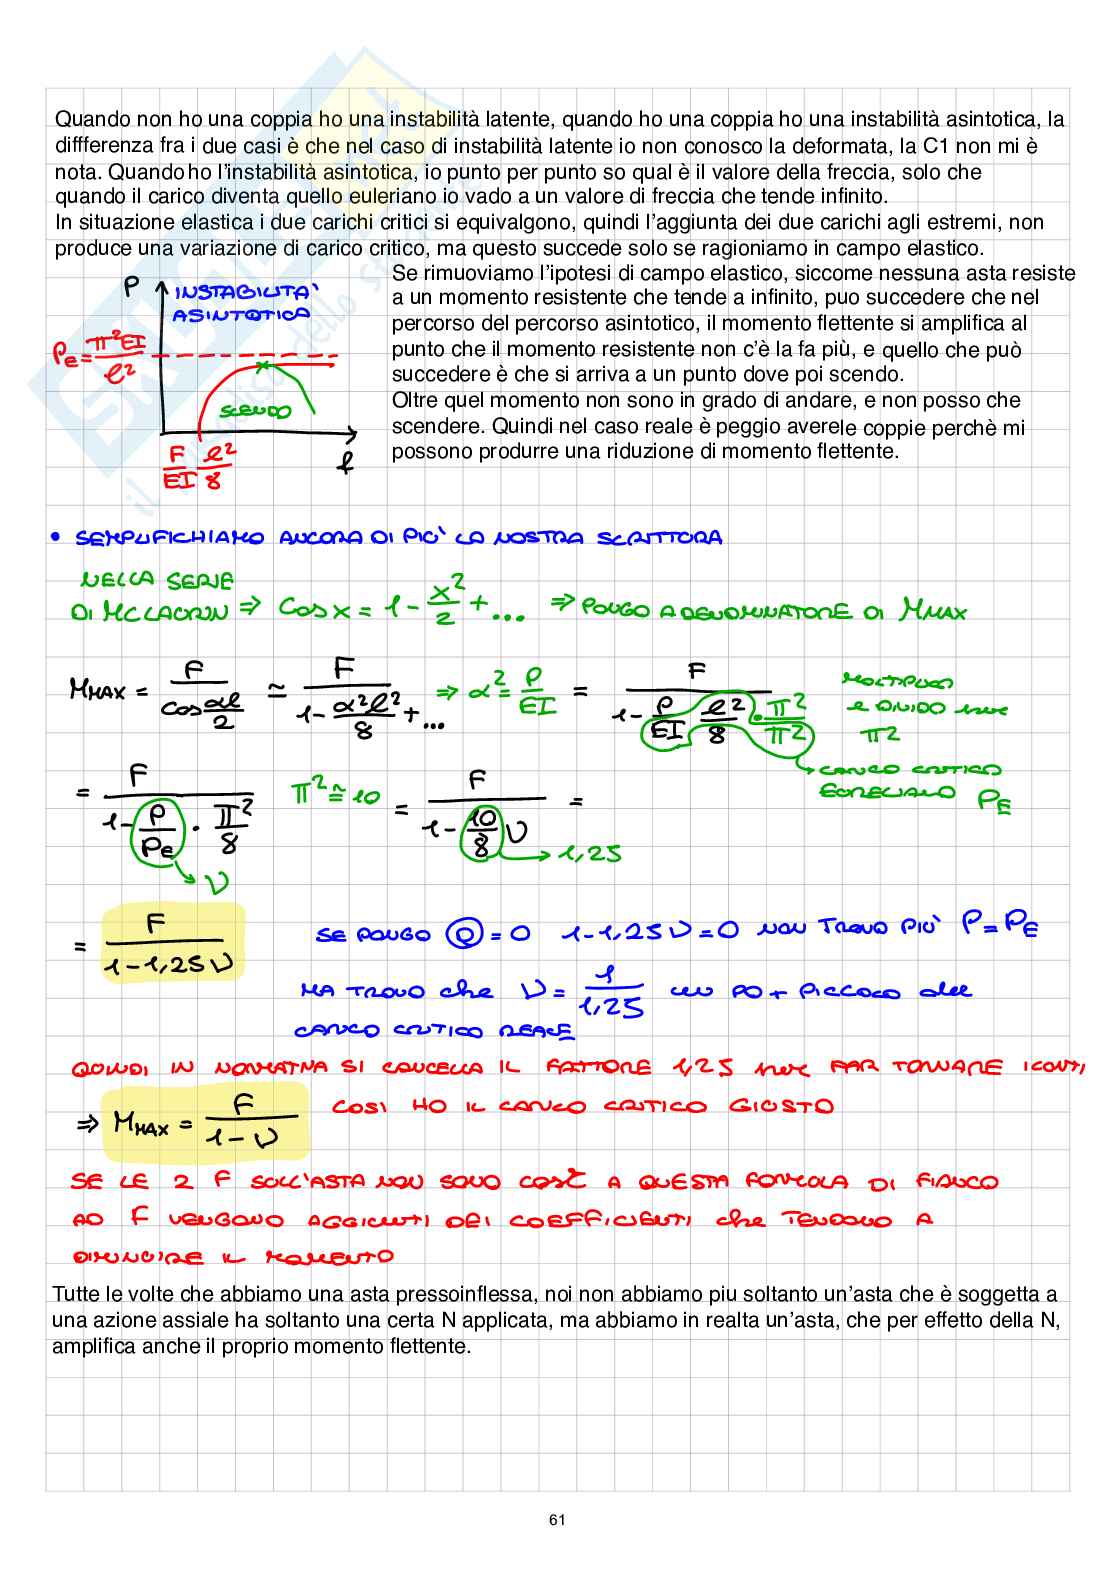 Quando non ho una coppia ho una instabilità latente, quando ho una coppia ho una instabilità asintotica, la
diffferenza fra i due casi è che nel caso di instabilità latente io non conosco la deformata, la C1 non mi è
nota. Quando ho l'instabilità asintotica, io punto per punto so qual è il valore della freccia, solo che
quando il carico diventa quello euleriano io vado a un valore di freccia che tende infinito.
In situazione elastica i due carichi critici si equivalgono, quindi l'aggiunta dei due carichi agli estremi, non
produce una variazione di carico critico, ma questo succede solo se ragioniamo in campo elastico.
P INSTABILITA' ASINTOTICA
PE = π²EI / l²
SCENDO
F/EI l²/8
f
Se rimuoviamo l'ipotesi di campo elastico, siccome nessuna asta resiste
a un momento resistente che tende a infinito, puo succedere che nel
percorso del percorso asintotico, il momento flettente si amplifica al
punto che il momento resistente non c'è la fa più, e quello che può
succedere è che si arriva a un punto dove poi scendo.
Oltre quel momento non sono in grado di andare, e non posso che
scendere. Quindi nel caso reale è peggio averele coppie perchè mi
possono produrre una riduzione di momento flettente.
• SEMPLIFICHIAMO ANCORA DI PIU' LA NOSTRA SCRITTURA
NELLA SERIE
DI MCLAURIN ⇒ cos x = 1 - x²/2 + ... ⇒ PONGO A DENOMINATORE DI MMAX
MMAX = F / cos αl/2 ≃ F / 1 - α²l²/8 + ... ⇒ α² = P/EI = F / 1 - P/EI l²/8 · π²/π²
MOLTIPLICO
E DIVIDO PER
π²
CARICO CRITICO
EULERIANO PE
= F / 1 - P/PE · π²/8 π² ≅ 10 = F / 1 - 10/8 ν =
1,25
ν
= F / 1 - 1,25 ν
SE PONGO D = 0 1 - 1,25 ν = 0 NON TROVO PIU' P = PE
MA TROVO che ν = 1/1,25 un PO + PICCOLO del
CARICO CRITICO REALE
QUINDI IN NORMATIVA SI CANCELLA IL FATTORE 1,25 PER FAR TORNARE I CONTI,
COSI HO IL CARICO CRITICO GIUSTO
⇒ MMAX = F / 1 - ν
SE LE 2 F SULL'ASTA NON SONO COST A QUESTA FORMULA DI FIANCO
AD F VENGONO AGGIUNTI DEI COEFFICIENTI che TENDONO A
DIMINUIRE IL MOMENTO
Tutte le volte che abbiamo una asta pressoinflessa, noi non abbiamo piu soltanto un'asta che è soggetta a
una azione assiale ha soltanto una certa N applicata, ma abbiamo in realta un'asta, che per effetto della N,
amplifica anche il proprio momento flettente.
61